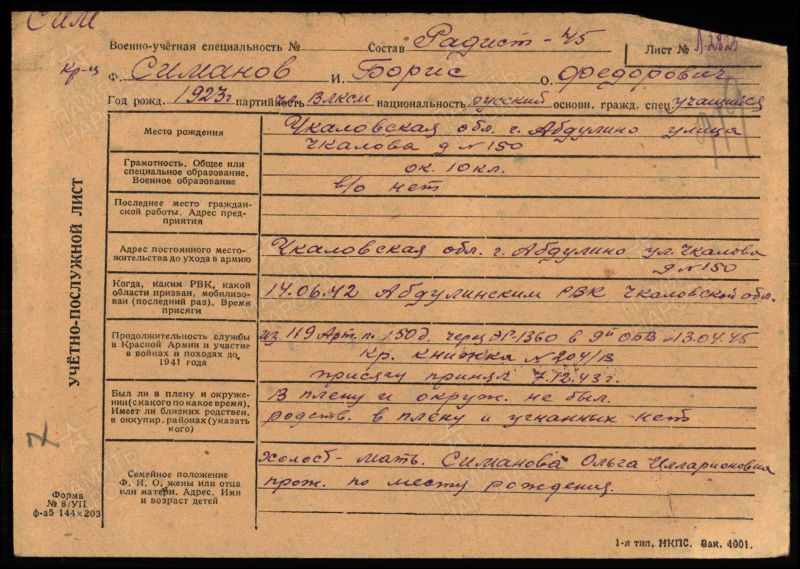 Сим
Военно-учётная специальность № Состав Радист - 45 Лист № Л-2825
Кр-ц
Ф. Симанов И. Борис О. Федорович
Год рожд. 1923г партийность чл. Влксм национальность русский основн. гражд. спец. учащийся
УЧЁТНО-ПОСЛУЖНОЙ ЛИСТ
Место рождения
Чкаловская обл. г. Абдулино улица
Чкалова д N 150
Грамотность. Общее или
специальное образование.
Военное образование
ок. 10 кл.
в/о нет
Последнее место граждан-
ской работы. Адрес пред-
приятия
Адрес постоянного место-
жительства до ухода в армию
Чкаловская обл. г. Абдулино ул. Чкалова
д N 150
Когда, каким РВК, какой
области призван, мобилизо-
ван (последний раз). Время
присяги
14.06.42 Абдулинским РВК Чкаловской обл.
Продолжительность службы
в Красной Армии и участие
в войнах и походах до
1941 года
из 119 Арт.п. 150д. через ЭГ-1360 в 9й ОБВ - 13.04.45
Кр. книжка N 204/В
присягу принял 7.12.43г.
Был ли в плену и окруже-
нии (с какого по какое время).
Имеет ли близких родствен.
в оккупир. районах (указать
кого)
В плену и окруж. не был.
родств. в плену и угнанных нет
Семейное положение
Ф. И. О. жены или отца
или матери. Адрес. Имя
и возраст детей
Холост - мать. Симанова Ольга Илларионовна
прож. по месту рождения.
Форма
№ 8/УП
ф-а5 144×203
1-я тип. НКПС. Зак. 4001.